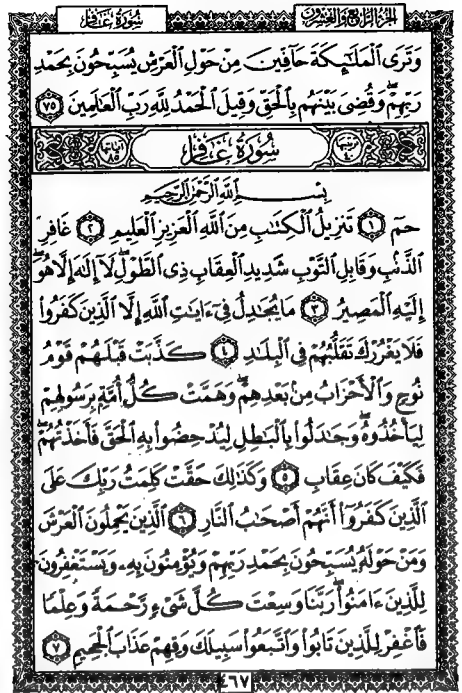 الجزء الرابع والعشرون سورة غافر
وَتَرَى ٱلْمَلَٰٓئِكَةَ حَآفِّينَ مِنْ حَوْلِ ٱلْعَرْشِ يُسَبِّحُونَ بِحَمْدِ
رَبِّهِمْۖ وَقُضِىَ بَيْنَهُم بِٱلْحَقِّ وَقِيلَ ٱلْحَمْدُ لِلَّهِ رَبِّ ٱلْعَٰلَمِينَ ٧٥
ترتيبها ٤٠ سُورَةُ غَافِر آياتها ٨٥
بِسْمِ ٱللَّهِ ٱلرَّحْمَٰنِ ٱلرَّحِيمِ
حمٓ ١ تَنزِيلُ ٱلْكِتَٰبِ مِنَ ٱللَّهِ ٱلْعَزِيزِ ٱلْعَلِيمِ ٢ غَافِرِ
ٱلذَّنۢبِ وَقَابِلِ ٱلتَّوْبِ شَدِيدِ ٱلْعِقَابِ ذِى ٱلطَّوْلِۖ لَآ إِلَٰهَ إِلَّا هُوَۖ
إِلَيْهِ ٱلْمَصِيرُ ٣ مَا يُجَٰدِلُ فِىٓ ءَايَٰتِ ٱللَّهِ إِلَّا ٱلَّذِينَ كَفَرُوا۟
فَلَا يَغْرُرْكَ تَقَلُّبُهُمْ فِى ٱلْبِلَٰدِ ٤ كَذَّبَتْ قَبْلَهُمْ قَوْمُ
نُوحٍ وَٱلْأَحْزَابُ مِنۢ بَعْدِهِمْۖ وَهَمَّتْ كُلُّ أُمَّةٍۭ بِرَسُولِهِمْ
لِيَأْخُذُوهُۖ وَجَٰدَلُوا۟ بِٱلْبَٰطِلِ لِيُدْحِضُوا۟ بِهِ ٱلْحَقَّ فَأَخَذْتُهُمْۖ
فَكَيْفَ كَانَ عِقَابِ ٥ وَكَذَٰلِكَ حَقَّتْ كَلِمَتُ رَبِّكَ عَلَى
ٱلَّذِينَ كَفَرُوٓا۟ أَنَّهُمْ أَصْحَٰبُ ٱلنَّارِ ٦ ٱلَّذِينَ يَحْمِلُونَ ٱلْعَرْشَ
وَمَنْ حَوْلَهُۥ يُسَبِّحُونَ بِحَمْدِ رَبِّهِمْ وَيُؤْمِنُونَ بِهِۦ وَيَسْتَغْفِرُونَ
لِلَّذِينَ ءَامَنُوا۟ۖ رَبَّنَا وَسِعْتَ كُلَّ شَىْءٍ رَّحْمَةً وَعِلْمًا
فَٱغْفِرْ لِلَّذِينَ تَابُوا۟ وَٱتَّبَعُوا۟ سَبِيلَكَ وَقِهِمْ عَذَابَ ٱلْجَحِيمِ ٧
٤٦٧